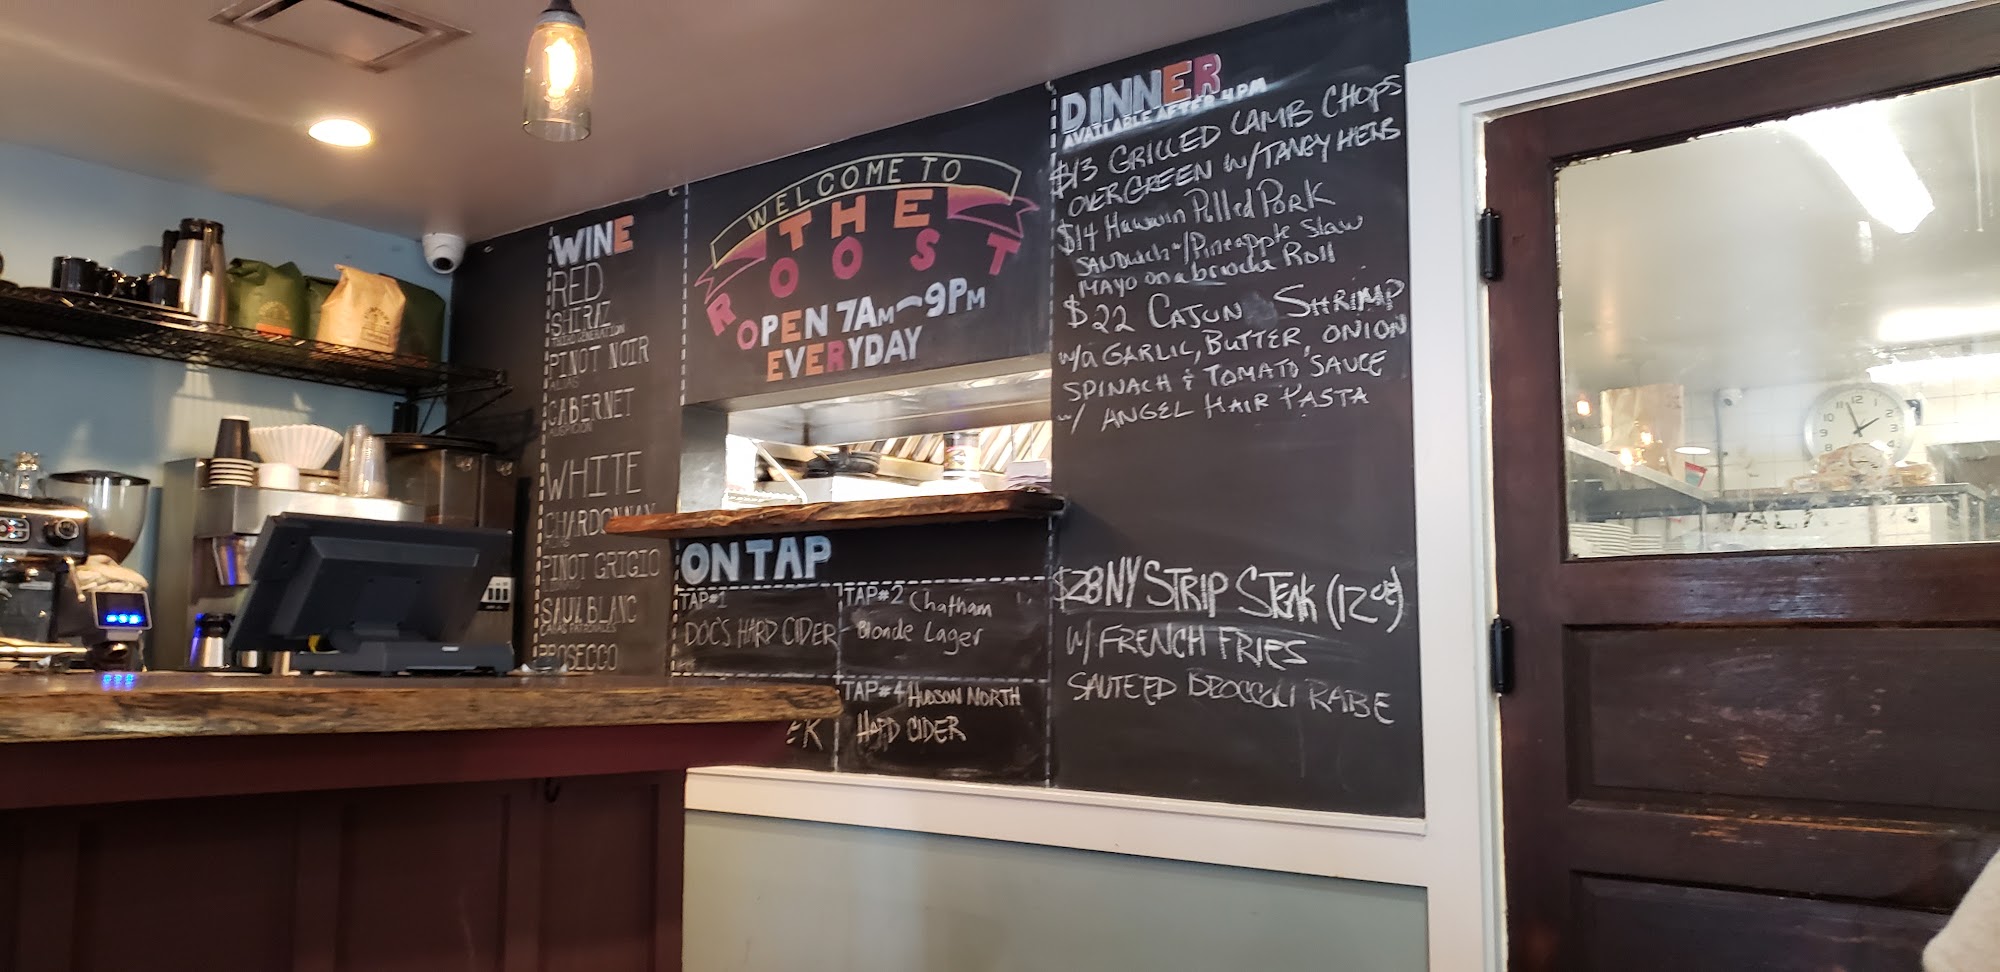 WINE
RED
SHIRAZ
THIRD GENERATION
PINOT NOIR
ALIAS
CABERNET
WHITE
CHARDONNAY
ALIAS
PINOT GRIGIO
SAUV. BLANC
CASAS PATRONALES
PROSECCO
WELCOME TO
THE
ROOST
OPEN 7AM-9PM
EVERYDAY
ON TAP
TAP#1
DOC'S HARD CIDER
TAP#2 Chatham
Blonde Lager
TAP#4 HUDSON NORTH
HARD CIDER
DINNER
AVAILABLE AFTER 4PM
$13 GRILLED LAMB CHOPS
OVER GREEN W/TANGY HERB
$14 Hawaiin Pulled Pork
SANDwich w/Pineapple Slaw
MAYO on a brioche Roll
$22 CAJUN SHRIMP
w/a GARLIC, BUTTER, ONION
SPINACH & TOMATO SAUCE
w/ ANGEL HAIR PASTA
$28 NY STRIP STEAK (12oz)
W/ FRENCH FRIES
SAUTEED BROCCOLI RABE